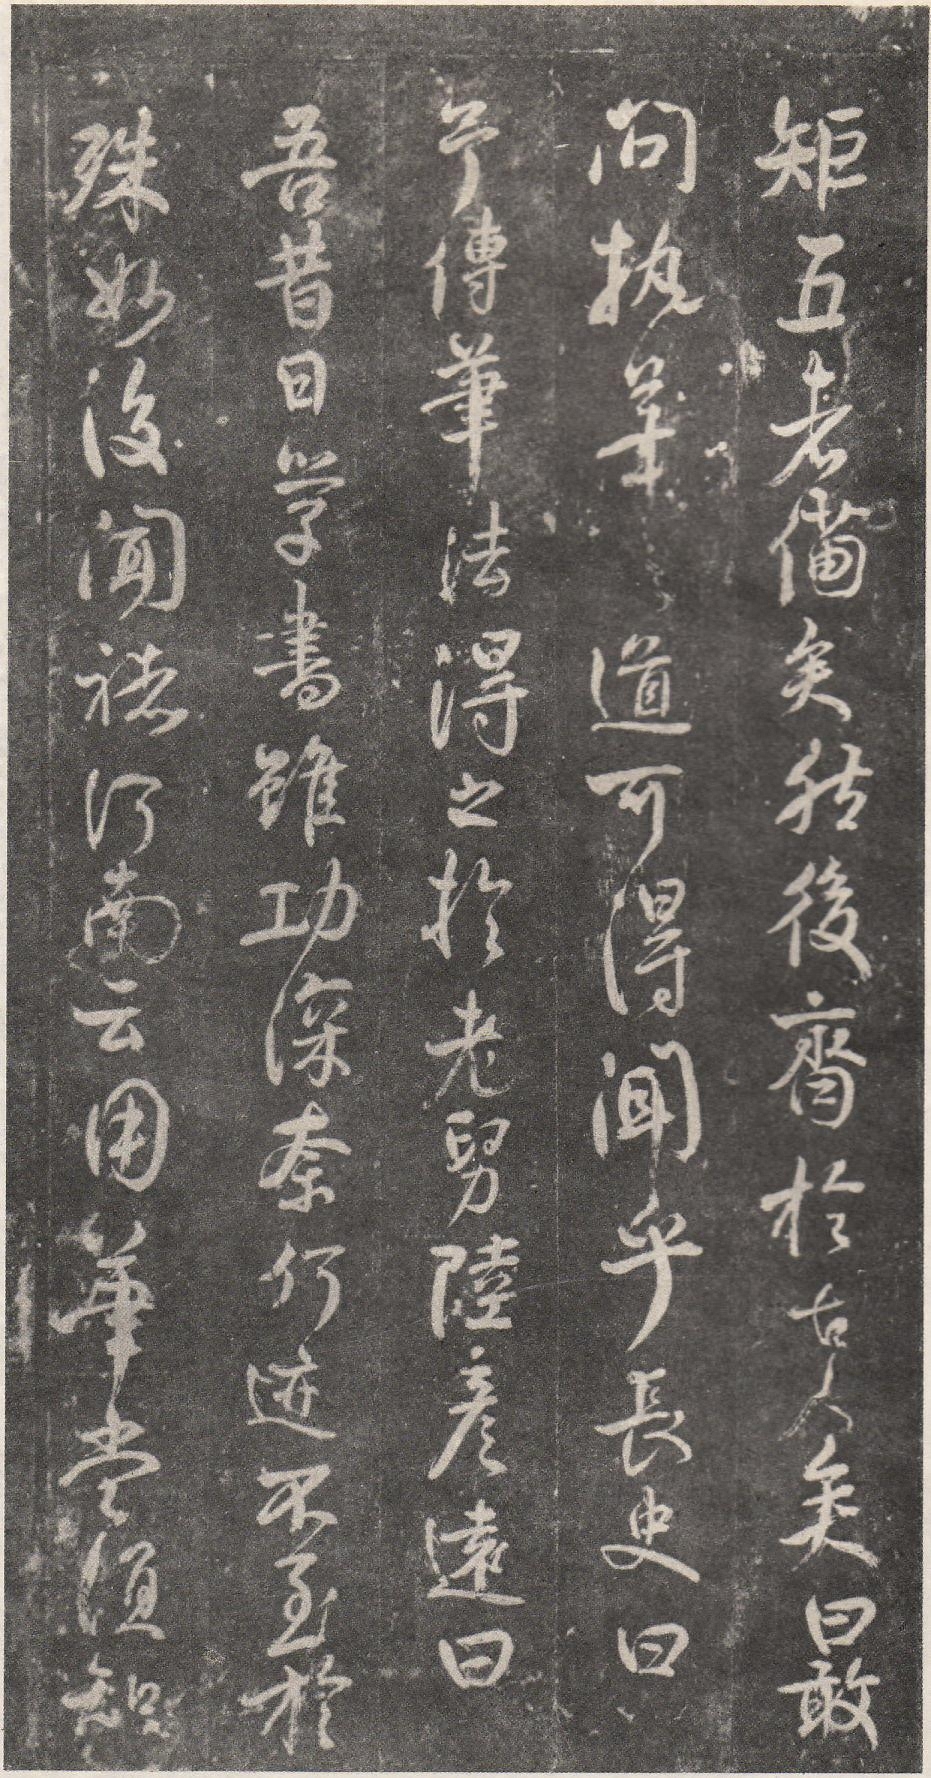 矩五者備矣然後齊於古人矣曰敢
問執筆之道可得聞乎長史曰
予傳筆法得之於老舅陸彥遠曰
吾昔日學書雖功深奈何迹不至於
殊妙後聞褚河南云用筆當須知